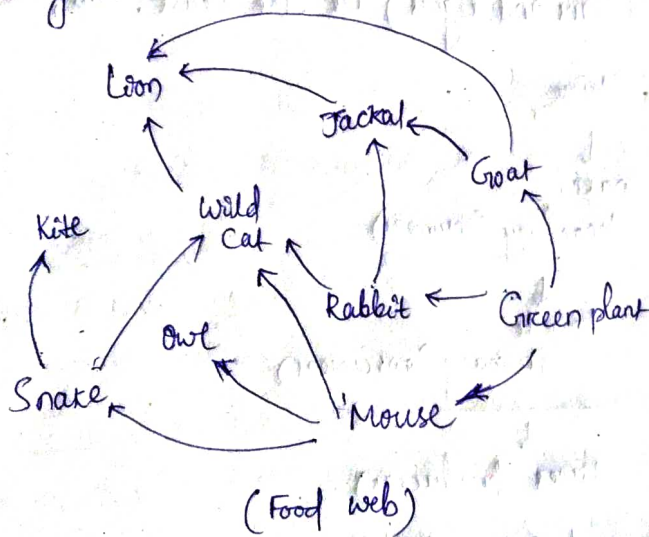 Lion
Jackal
Goat
Wild
Cat
Kite
Rabbit
Green plant
Owl
Snake
Mouse
(Food web)